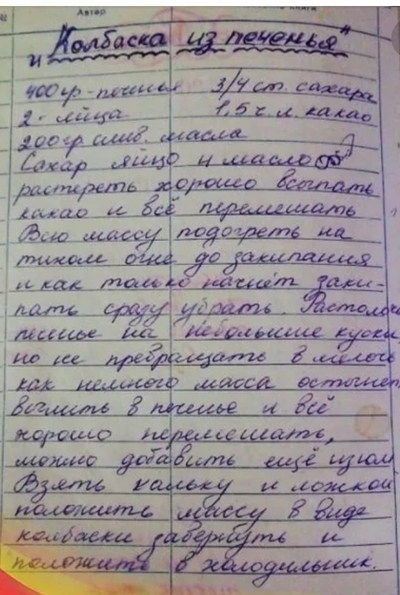 Автор
"Колбаска из печенья"
400гр-печенья 3/4 ст. сахара
2-яйца 1,5 ч.л. какао
200гр слив. масла
Сахар яйцо и масло
растереть хорошо всыпать
какао и всё перемешать
Всю массу подогреть на
тихом огне до закипания
и как только начнёт заки-
пать сразу убрать. Растолоч
печенье на небольшие куски,
но не превращать в мелочь
как немного масса остынет
вылить в печенье и всё
хорошо перемешать,
можно добавить ещё изюм
Взять кальку и ложкой
положить массу в виде
колбаски завернуть и
положить в холодильник.